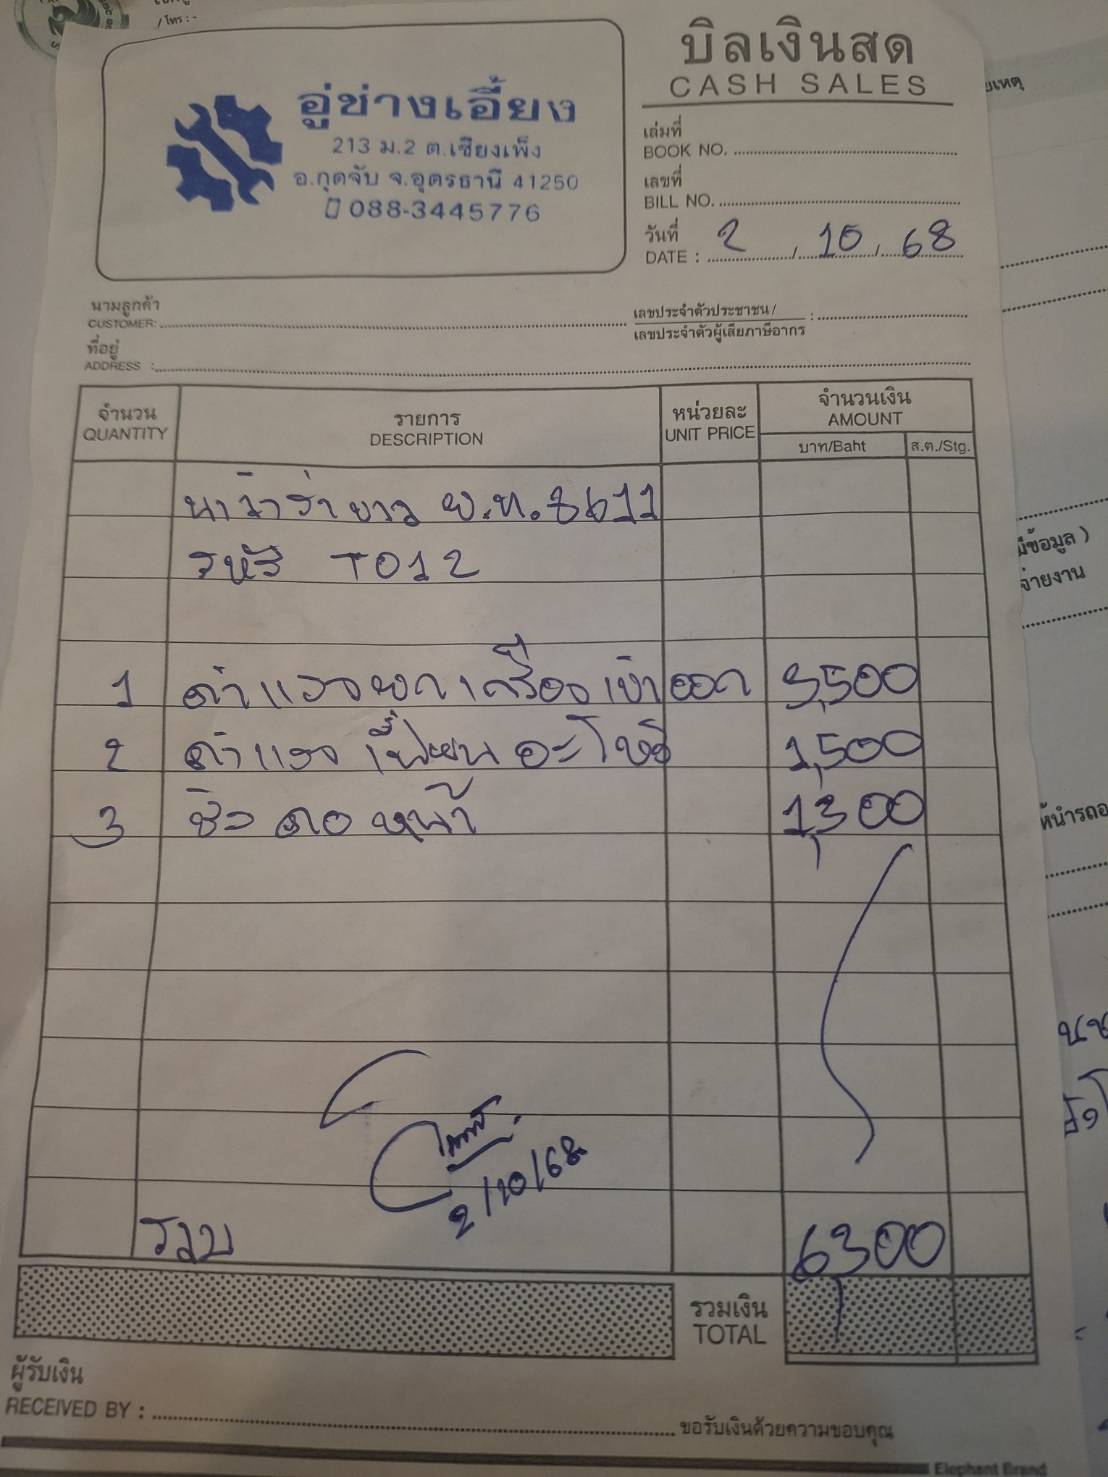 / โทร : -
บิลเงินสด
CASH SALES
อู่ช่างเอี้ยง
213 ม.2 ต.เชียงเพ็ง
อ.กุดจับ จ.อุดรธานี 41250
088-3445776
เล่มที่
BOOK NO.
เลขที่
BILL NO.
วันที่
DATE : 2 / 10 / 68
นามลูกค้า
CUSTOMER:
เลขประจำตัวประชาชน /
เลขประจำตัวผู้เสียภาษีอากร :
ที่อยู่
ADDRESS :
จำนวน รายการ หน่วยละ จำนวนเงิน
QUANTITY DESCRIPTION UNIT PRICE AMOUNT
บาท/Baht ส.ต./Stg.
นาวาร่า ขาว ผ.ท. 8611
รหัส T012
1 ค่าแรงยกเครื่องเข้าออก 3,500
2 ค่าแรง เปลี่ยน อะไหล่ 1,500
3 ซีล คอ หน้า 1,300
2/10/68
รวม 6,300
รวมเงิน
TOTAL
ผู้รับเงิน
RECEIVED BY :
ขอรับเงินด้วยความขอบคุณ
Elephant Brand
มีข้อมูล )
จ่ายงาน